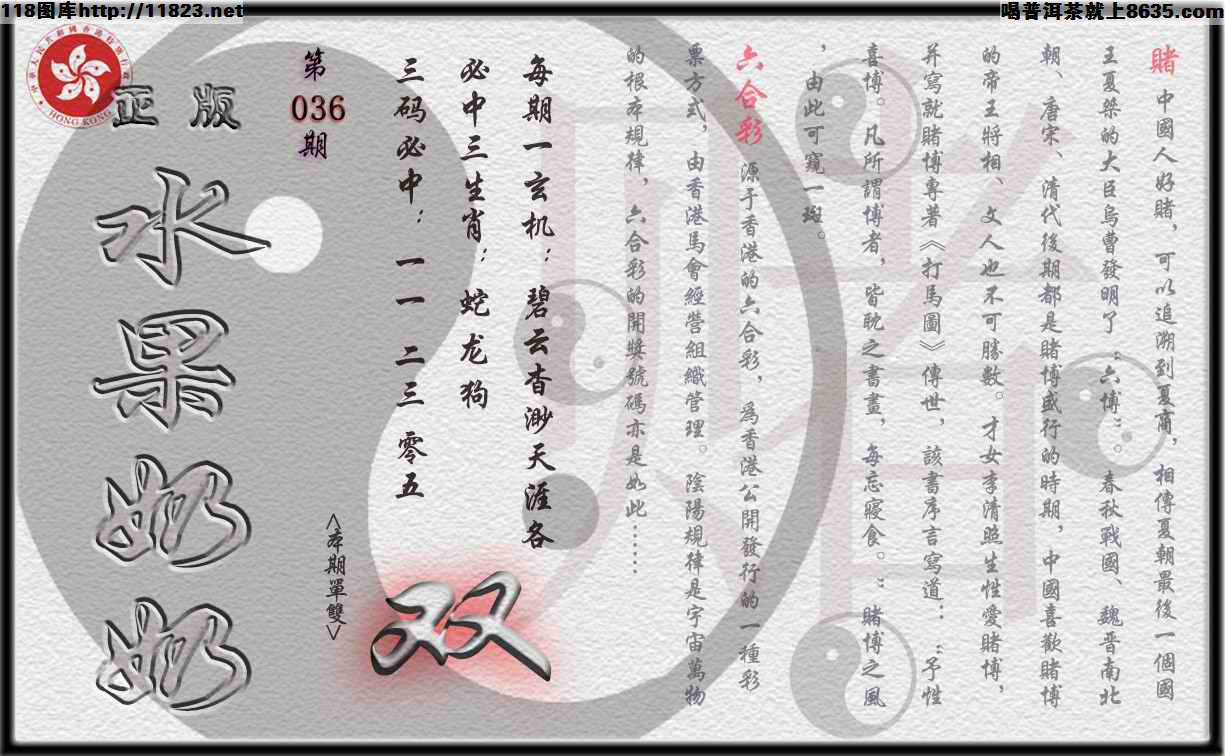 118图库http://11823.net
喝普洱茶就上8635.com
賭 中國人好賭，可以追溯到夏商，相傳夏朝最後一個國
王夏桀的大臣烏曹發明了“六博”。春秋戰國、魏晋南北
朝、唐宋、清代後期都是賭博盛行的時期，中國喜歡賭博
的帝王將相、文人也不可勝數。才女李清照生性愛賭博，
并寫就賭博專著《打馬圖》傳世，該書序言寫道：“予性
喜博。凡所謂博者，皆耽之書畫，每忘寢食。”賭博之風
，由此可窺一斑。
六合彩 源于香港的六合彩，爲香港公開發行的一種彩
票方式，由香港馬會經營組織管理。陰陽規律是宇宙萬物
的根本規律，六合彩的開獎號碼亦是如此……
每期一玄机：碧云杳渺天涯各
必中三生肖：蛇龙狗
三码必中：一一 二三 零五
<本期單雙>
双
第
036
期
正版
水果奶奶
HONG KONG